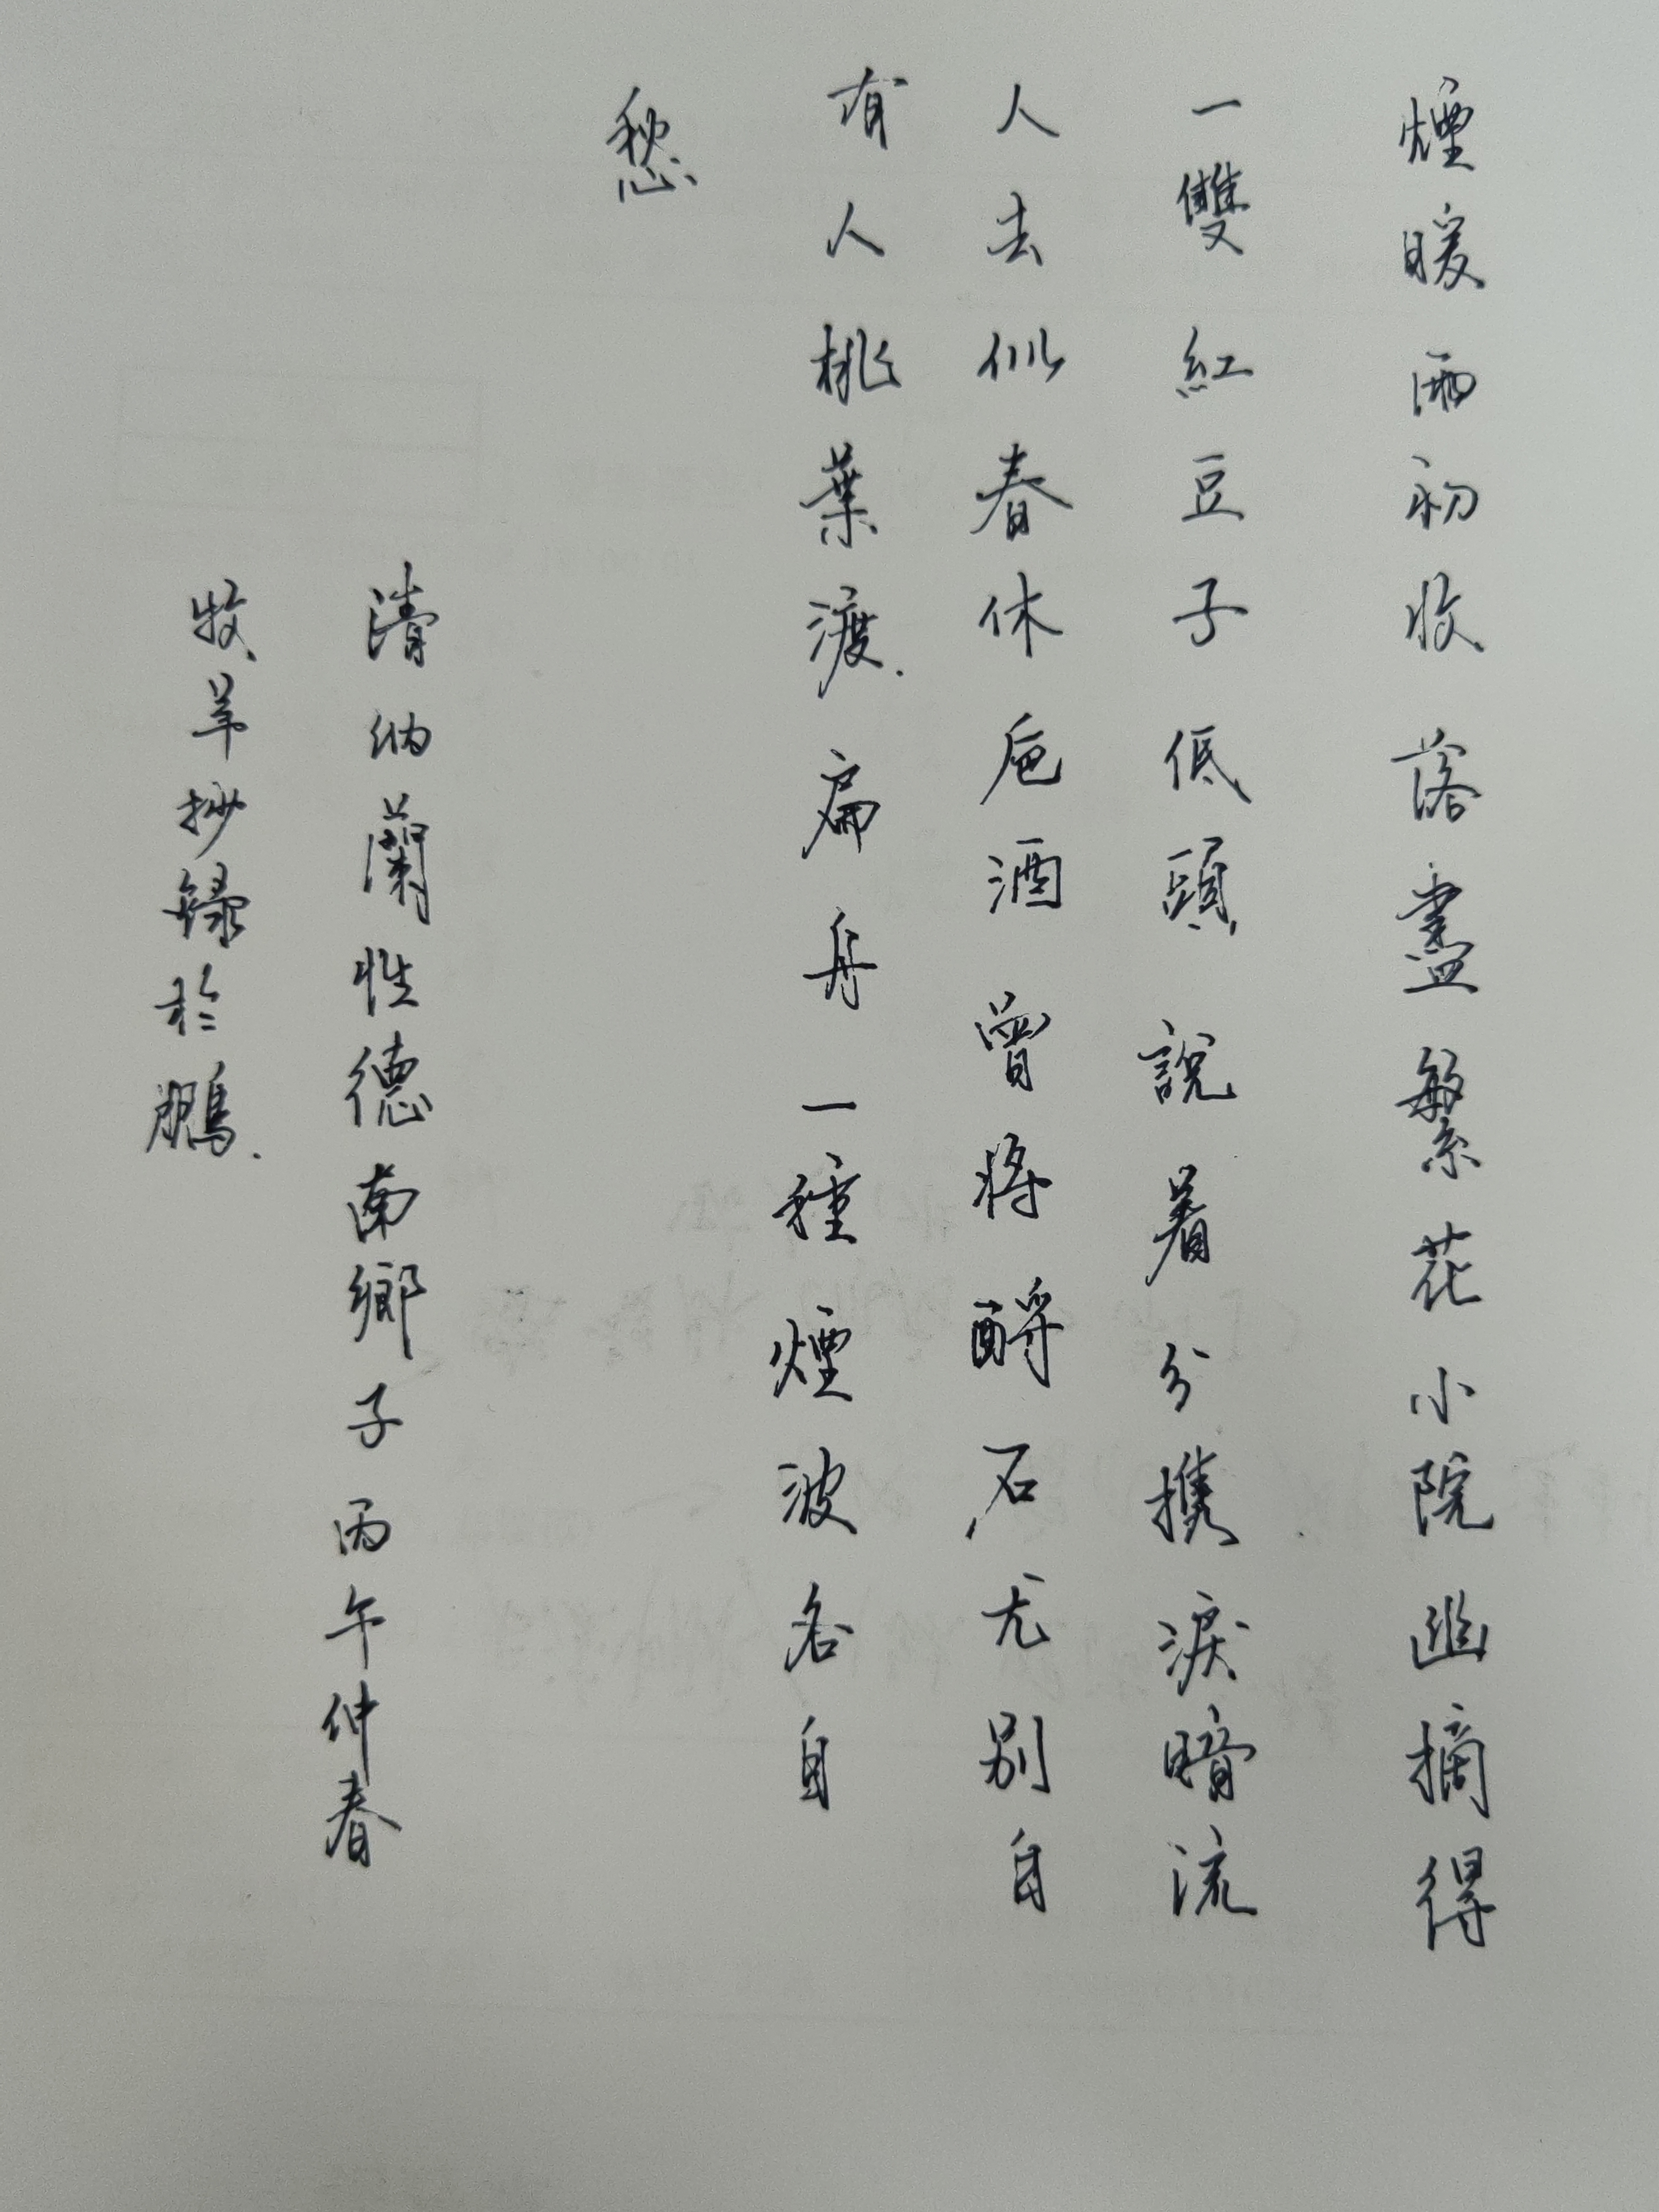 煙暖雨初收落盡繁花小院幽摘得
一雙紅豆子低頭説着分攜淚暗流
人去似春休卮酒曾將酹石尤别自
有人桃葉渡扁舟一種煙波各自
愁
清納蘭性德南鄉子丙午仲春
牧羊抄錄於鵬